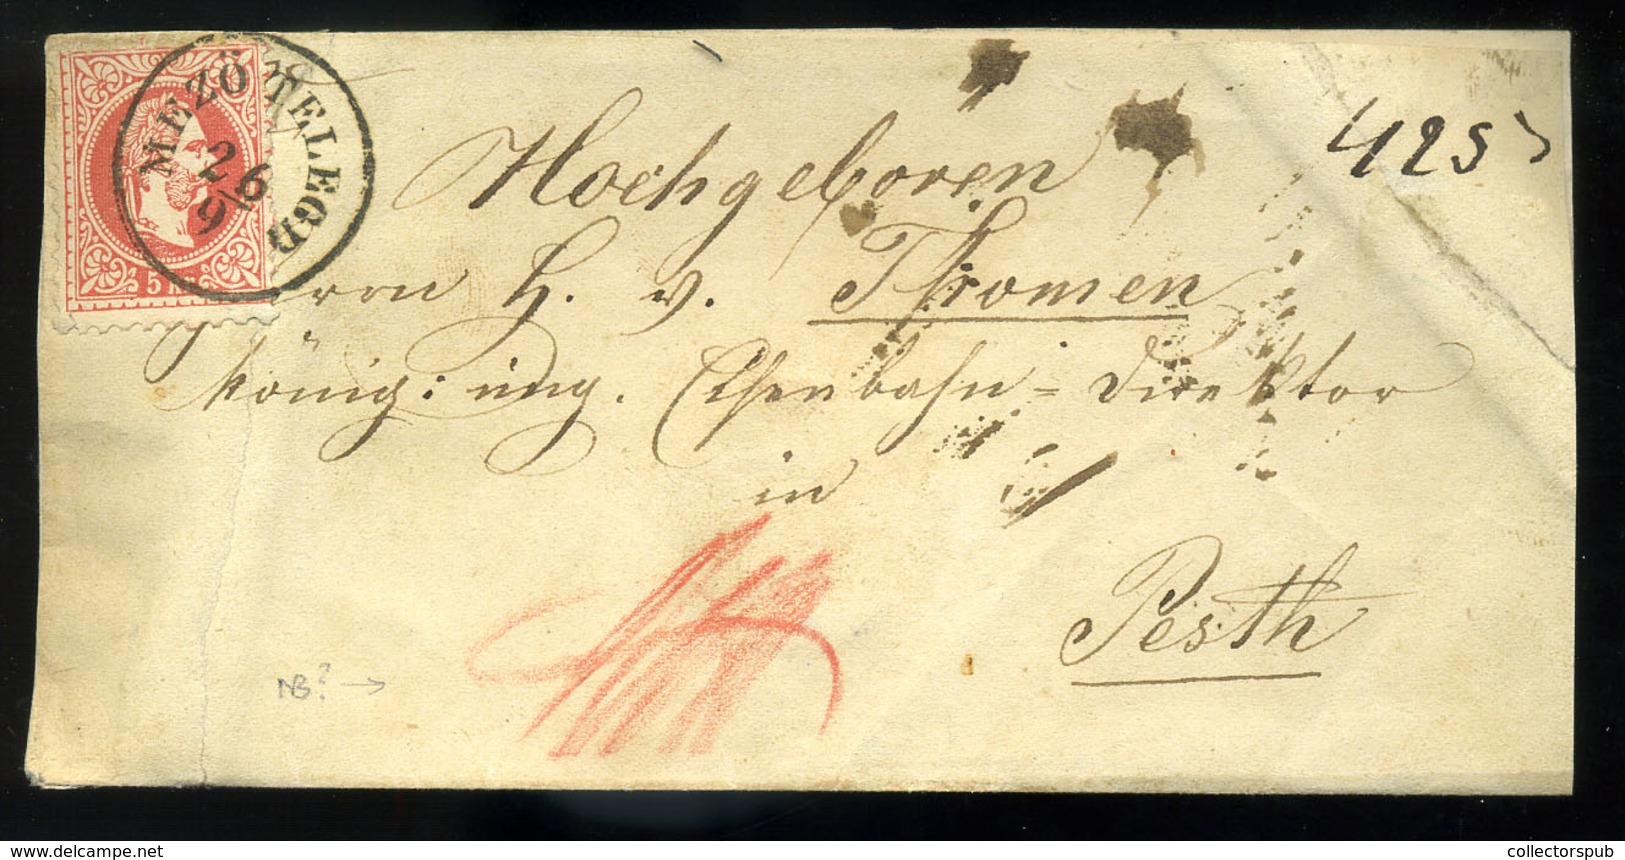 MEZÖ TELEGD
26
9
5 kr
425
Hochgeboren
Herrn H. v. Thomen
königl: ung. Eisenbahn = Direktor
in
Pesth
NB? →
delcampe.net
collectorspub